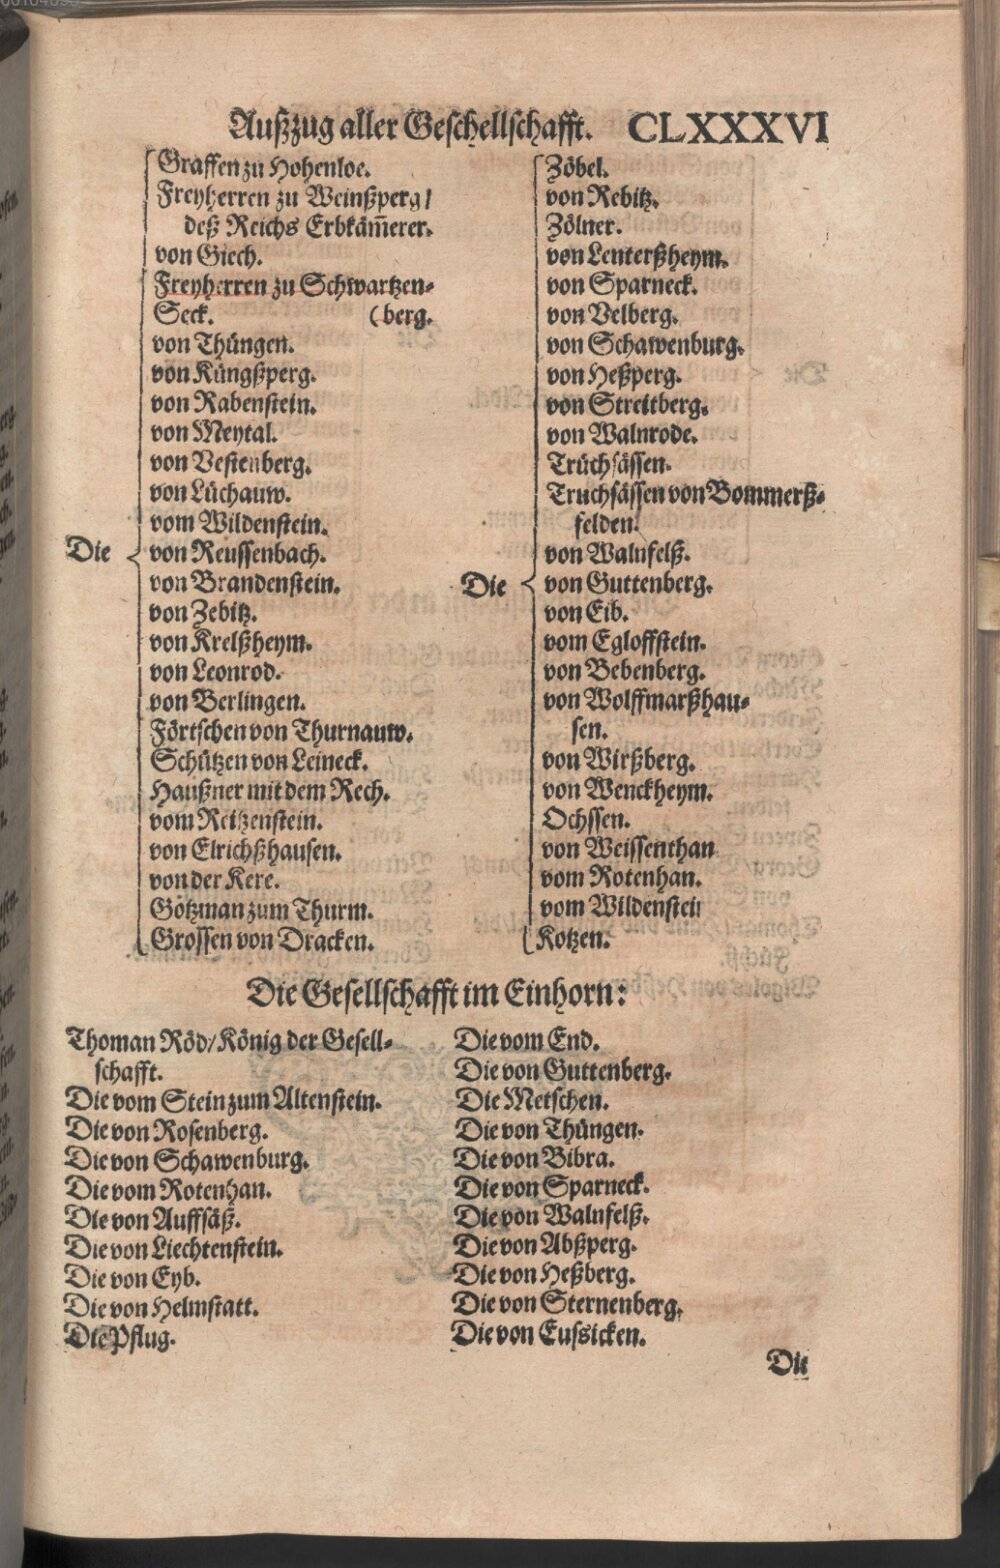 Außzug aller Geschellschafft. CLXXXVI
Graffen zu Hohenloe.
Freyherren zu Weinßperg/
deß Reichs Erbkäm̃erer.
von Giech.
Freyherren zu Schwartzen-
Seck. (berg.
von Thüngen.
von Küngßperg.
von Rabenstein.
von Meytal.
von Vestenberg.
von Lüchauw.
vom Wildenstein.
Die von Reussenbach.
von Brandenstein.
von Zebitz.
von Krelßheym.
von Leonrod.
von Berlingen.
Förtschen von Thurnauw.
Schützen von Leineck.
Haußner mit dem Rech.
vom Reitzenstein.
von Elrichßhausen.
von der Kere.
Götzman zum Thurm.
Grossen von Dracken.
Zöbel.
von Rebitz.
Zölner.
von Lenterßheym.
von Sparneck.
von Velberg.
von Schawenburg.
von Heßperg.
von Streitberg.
von Walnrode.
Trüchsässen.
Truchsässen von Bommerß-
felden.
von Walnfelß.
Die von Guttenberg.
von Eib.
vom Egloffstein.
von Bebenberg.
von Wolffmarßhau-
sen.
von Wirßberg.
von Wenckheym.
Ochssen.
von Weissenthan
vom Rotenhan.
vom Wildenstein
Kotzen.
Die Gesellschafft im Einhorn:
Thoman Röd/König der Gesell-
schafft.
Die vom Stein zum Altenstein.
Die von Rosenberg.
Die von Schawenburg.
Die vom Rotenhan.
Die von Auffsäß.
Die von Liechtenstein.
Die von Eyb.
Die von Helmstatt.
Die Pflug.
Die vom End.
Die von Guttenberg.
Die Metschen.
Die von Thüngen.
Die von Bibra.
Die von Sparneck.
Die von Walnfelß.
Die von Abßperg.
Die von Heßberg.
Die von Sternenberg.
Die von Eussicken.
Die